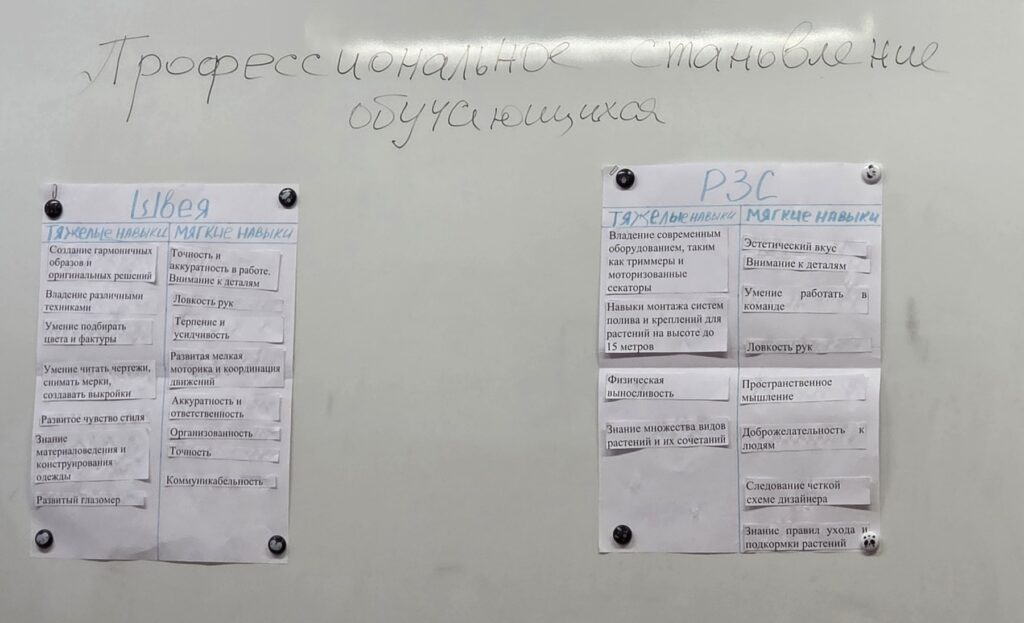 Профессиональное становление
обучающихся
Швея
ТЯЖЕЛЫЕ НАВЫКИ
Создание гармоничных
образов и
оригинальных решений
Владение различными
техниками
Умение подбирать
цвета и фактуры
Умение читать чертежи,
снимать мерки,
создавать выкройки
Развитое чувство стиля
Знание
материаловедения и
конструирования
одежды
Развитый глазомер
МЯГКИЕ НАВЫКИ
Точность и
аккуратность в работе.
Внимание к деталям
Ловкость рук
Терпение и
усидчивость
Развитая мелкая
моторика и координация
движений
Аккуратность и
ответственность
Организованность
Точность
Коммуникабельность
РЗС
ТЯЖЕЛЫЕ НАВЫКИ
Владение современным
оборудованием, таким
как триммеры и
моторизованные
секаторы
Навыки монтажа систем
полива и креплений для
растений на высоте до
15 метров
Физическая
выносливость
Знание множества видов
растений и их сочетаний
МЯГКИЕ НАВЫКИ
Эстетический вкус
Внимание к деталям
Умение работать в
команде
Ловкость рук
Пространственное
мышление
Доброжелательность к
людям
Следование четкой
схеме дизайнера
Знание правил ухода и
подкормки растений